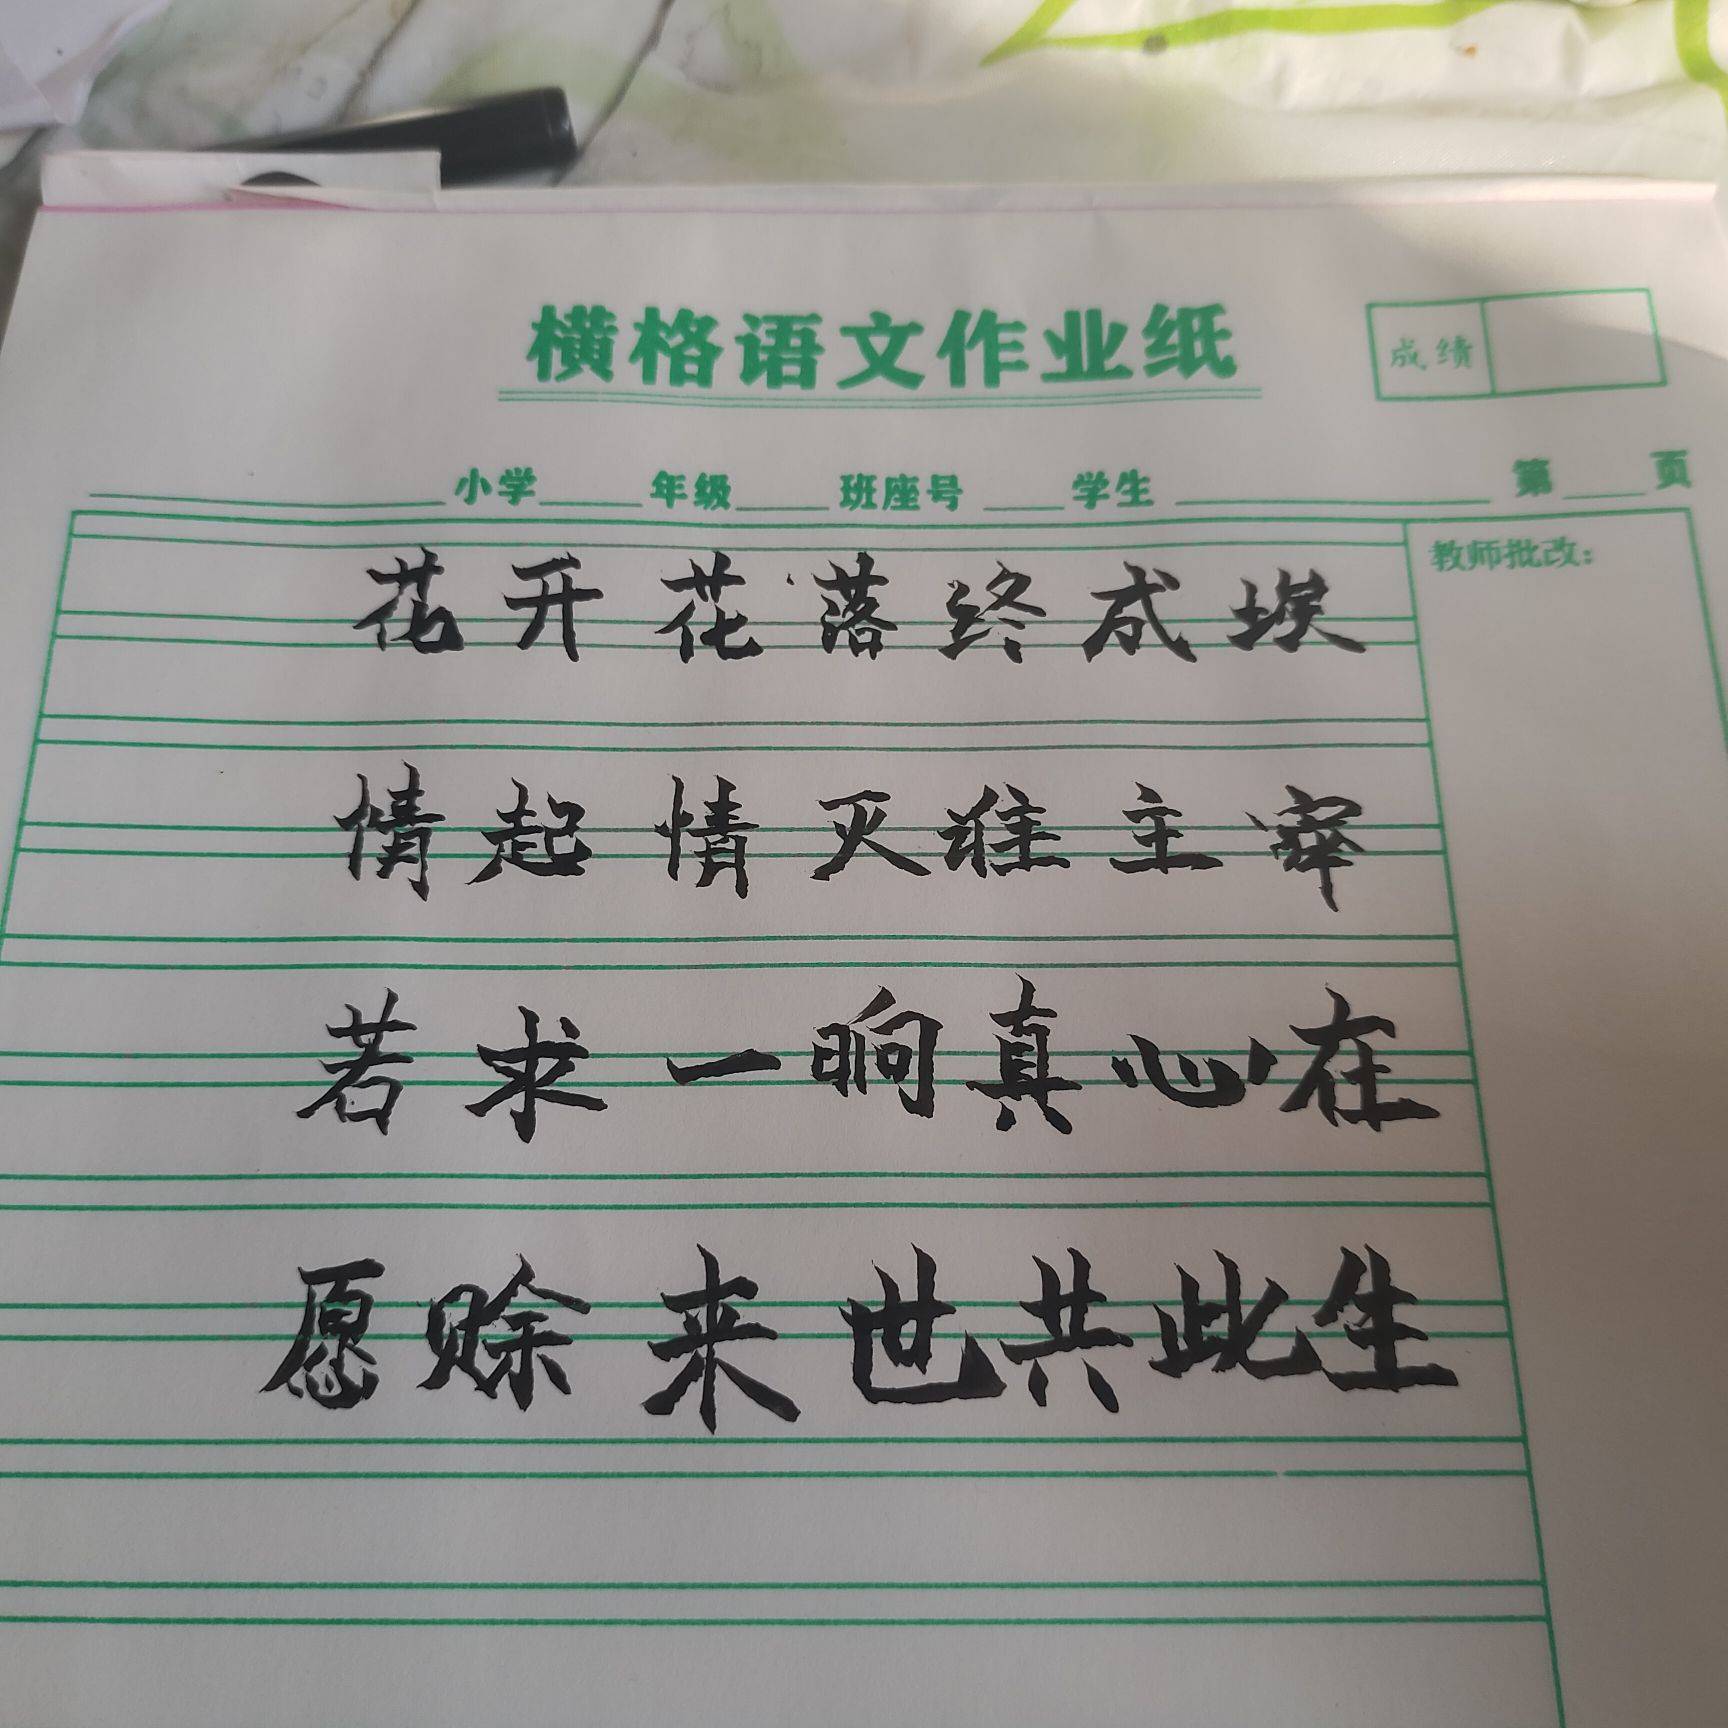 横格语文作业纸
成绩
小学 年级 班座号 学生 第 页
教师批改：
花开花落终成埃
情起情灭难主宰
若求一晌真心在
愿赊来世共此生